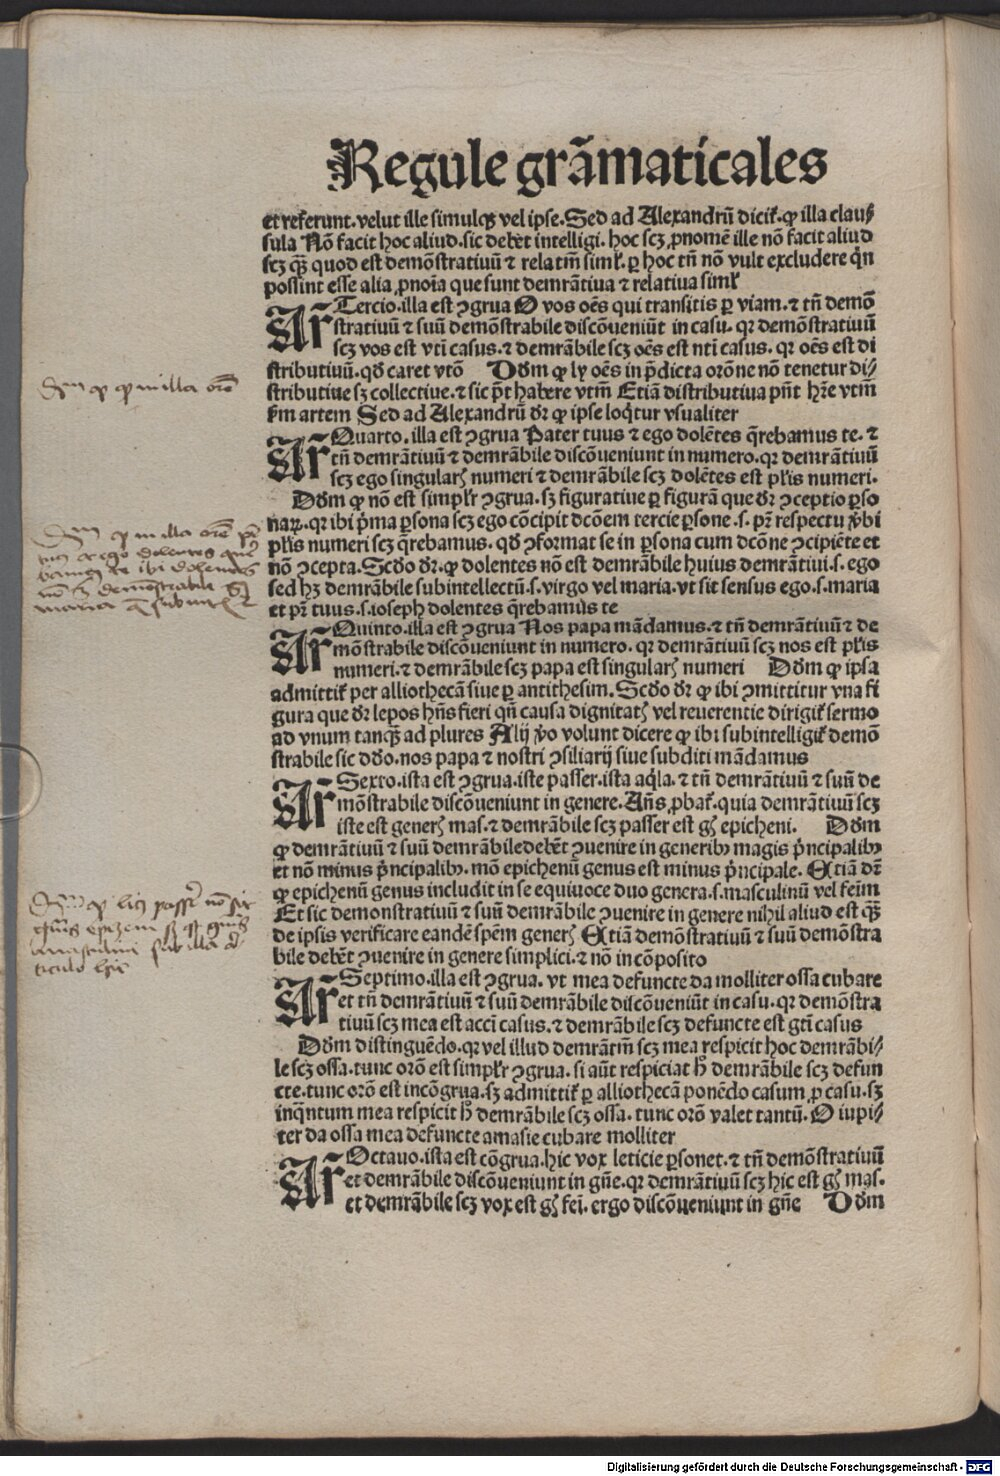 Regule grãmaticales
et referunt. velut ille simulqꝫ vel ipse. Sed ad Alexandrũ dicit᷑. ꝙ illa clau⸗
sula Nõ facit hoc aliud. sic debet intelligi. hoc scꝫ ꝓnomẽ ille nõ facit aliud
scꝫ qꝫ̃ quod est demõstratiuũ ⁊ relatm̃ simĺ. ꝑ hoc tñ nõ vult excludere qñ
possint esse alia ꝓnoĩa que sunt demrãtiua ⁊ relatiua simĺ
Ar̃ Tercio. illa est ꝯgrua O vos oẽs qui transitis ꝑ viam. ⁊ tñ demõ
stratiuũ ⁊ suũ demõstrabile discõueniũt in casu. qꝛ demõstratiuũ
scꝫ vos est vti casus. ⁊ demrãbile scꝫ oẽs est nti casus. qꝛ oẽs est di
stributiuũ. qd̃ caret vtõ Dd̃m ꝙ ly oẽs in p̃dicta orõne nõ tenetur di⸗
stributiue sꝫ collectiue. ⁊ sic põt habere vtm̃ Etiã distributiua pñt hr̃e vtm̃
ẜm artem Sed ad Alexandrũ dr̃ ꝙ ipse loq̃tur vsualiter
Ar̃ Quarto. illa est ꝯgrua Pater tuus ⁊ ego dolẽtes q̃rebamus te. ⁊
tñ demrãtiuũ ⁊ demrãbile discõueniunt in numero. qꝛ demrãtiuũ
scꝫ ego singularꝭ numeri ⁊ demrãbile scꝫ dolẽtes est pĺis numeri.
Dd̃m ꝙ nõ est simpĺr ꝯgrua. sꝫ figuratiue ꝑ figurã que dr̃ ꝯceptio ꝑso
naꝝ. qꝛ ibi p̃ma ꝑsona scꝫ ego cõcipit dcõem tercie ꝑsone. s. pr̃ respectu ꝟbi
pĺis numeri scꝫ q̃rebamus. qd̃ ꝯformat se in ꝑsona cum dcõne ꝯcipiẽte et
nõ ꝯcepta. Scd̃o dr̃. ꝙ dolentes nõ est demrãbile huius demrãtiui. s. ego
sed hꝫ demrãbile subintellectũ. s. virgo vel maria. vt sit sensus ego. s. maria
et pr̃ tuus. s. ioseph dolentes q̃rebamus te
Ar̃ Quinto. illa est ꝯgrua Nos papa mãdamus. ⁊ tñ demrãtiuũ ⁊ de
mõstrabile discõueniunt in numero. qꝛ demrãtiuũ scꝫ nos est pĺis
numeri. ⁊ demrãbile scꝫ papa est singularꝭ numeri Dd̃m ꝙ ipsa
admittit᷑ per alliothecã siue ꝑ antithesim. Scd̃o dr̃ ꝙ ibi ꝯmittitur vna fi
gura que dr̃ lepos hñs fieri qñ causa dignitatꝭ vel reuerentie dirigit᷑ sermo
ad vnum tanqꝫ̃ ad plures Alij ꝟo volunt dicere ꝙ ibi subintelligit᷑ demõ
strabile sic dd̃o. nos papa ⁊ nostri ꝯsiliarij siue subditi mãdamus
Ar̃ Sexto. ista est ꝯgrua. iste passer. ista aq̃la. ⁊ tñ demrãtiuũ ⁊ suũ de
mõstrabile discõueniunt in genere. Añs ꝓbat᷑. quia demrãtiuũ scꝫ
iste est generꝭ mas. ⁊ demrãbile scꝫ passer est gꝭ epicheni. Dd̃m
ꝙ demrãtiuũ ⁊ suũ demrãbile debẽt ꝯuenire in generibꝰ magis p̃ncipalibꝰ
et nõ minus p̃ncipalibꝰ. mõ epichenũ genus est minus p̃ncipale. Etiã dr̃
ꝙ epichenũ genus includit in se equiuoce duo genera. s. masculinũ vel feĩm
Et sic demonstratiuũ ⁊ suũ demrãbile ꝯuenire in genere nihil aliud est qꝫ̃
de ipsis verificare eandẽ spẽm generꝭ Etiã demõstratiuũ ⁊ suũ demõstra
bile debẽt ꝯuenire in genere simplici. ⁊ nõ in cõposito
Ar̃ Septimo. illa est ꝯgrua. vt mea defuncte da molliter ossa cubare
et tñ demrãtiuũ ⁊ suũ demrãbile discõueniũt in casu. qꝛ demõstra
tiuũ scꝫ mea est acci casus. ⁊ demrãbile scꝫ defuncte est gti casus
Dd̃m distinguẽdo. qꝛ vel illud demrãtm̃ scꝫ mea respicit hoc demrãbi⸗
le scꝫ ossa. tunc orõ est simpĺr ꝯgrua. si aũt respiciat h̃ demrãbile scꝫ defun
cte. tunc orõ est incõgrua. sꝫ admittit᷑ ꝑ alliothecã ponẽdo casum ꝓ casu. sꝫ
inq̃ntum mea respicit h̃ demrãbile scꝫ ossa. tunc orõ valet tantũ. O iupi⸗
ter da ossa mea defuncte amasie cubare molliter
Ar̃ Octauo. ista est cõgrua. hic vox leticie ꝑsonet. ⁊ tñ demõstratiuũ
et demrãbile discõueniunt in gñe. qꝛ demrãtiuũ scꝫ hic est gꝭ mas.
et demrãbile scꝫ vox est gꝭ fei. ergo discõueniunt in gñe Dd̃m
Digitalisierung gefördert durch die Deutsche Forschungsgemeinschaft - DFG